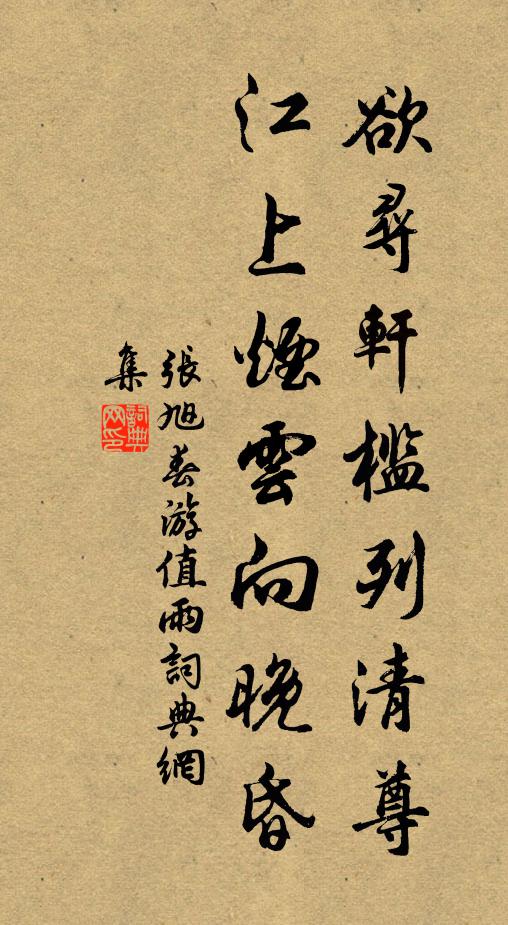 欲尋軒檻列清尊
江上煙雲向晚昏
張旭春游值雨詞典網
集
詞典
网印